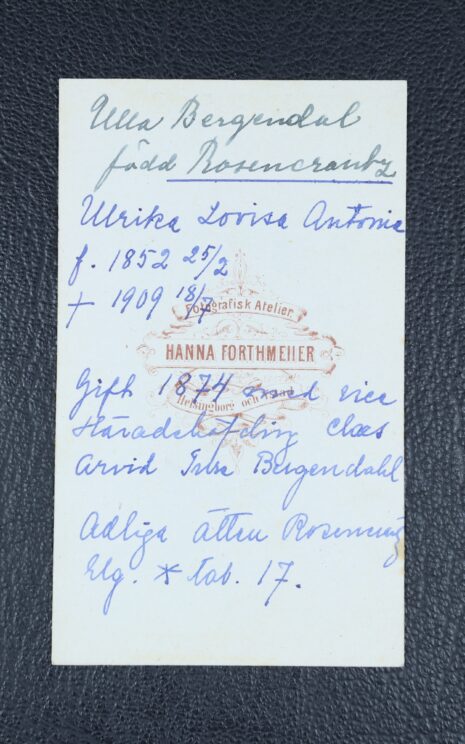 Ulla Bergendal
född Rosencrantz
Ulrika Lovisa Antonia
f. 1852 25/2
† 1909 18/7
Fotografisk Atelier.
HANNA FORTHMEIIER
Gift 1874 med vice
Helsingborg och
Häradshöfding Claes
Arvid Bergendahl
Adliga ätten
Elg. * tab. 17.